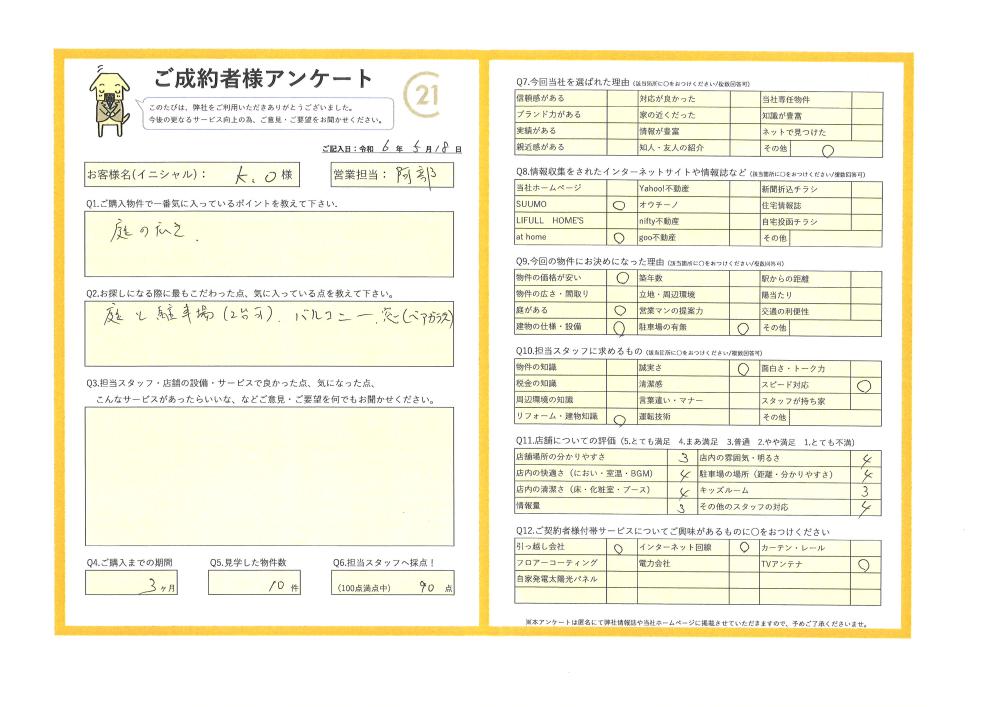 ご成約者様アンケート
21
このたびは、弊社をご利用いただきありがとうございました。
今後の更なるサービス向上の為、ご意見・ご要望をお聞かせください。
ご記入日：令和 6 年 5 月 18 日
お客様名(イニシャル)： K.O 様
営業担当： 阿部
Q1.ご購入物件で一番気に入っているポイントを教えて下さい.
庭の広さ.
Q2.お探しになる際に最もこだわった点、気に入っている点を教えて下さい。
庭と駐車場(2台可). バルコニー.窓(ペアガラス)
Q3.担当スタッフ・店舗の設備・サービスで良かった点、気になった点、
こんなサービスがあったらいいな、などご意見・ご要望を何でもお聞かせください。
Q4.ご購入までの期間 Q5.見学した物件数 Q6.担当スタッフへ採点！
3ヶ月 10 件 (100点満点中) 90 点
Q7.今回当社を選ばれた理由 (該当箇所に〇をおつけください/複数回答可)
信頼感がある 対応が良かった 当社専任物件
ブランド力がある 家の近くだった 知識が豊富
実績がある 情報が豊富 ネットで見つけた
親近感がある 知人・友人の紹介 その他 〇
Q8.情報収集をされたインターネットサイトや情報誌など (該当箇所に〇をおつけください/複数回答可)
当社ホームページ Yahoo!不動産 新聞折込チラシ
SUUMO 〇 オウチーノ 住宅情報誌
LIFULL HOME'S nifty不動産 自宅投函チラシ
at home 〇 goo不動産 その他
Q9.今回の物件にお決めになった理由 (該当箇所に〇をおつけください/複数回答可)
物件の価格が安い 〇 築年数 駅からの距離
物件の広さ・間取り 立地・周辺環境 陽当たり
庭がある 〇 営業マンの提案力 交通の利便性
建物の仕様・設備 〇 駐車場の有無 〇 その他
Q10.担当スタッフに求めるもの (該当箇所に〇をおつけください/複数回答可)
物件の知識 誠実さ 〇 面白さ・トーク力
税金の知識 清潔感 スピード対応 〇
周辺環境の知識 言葉遣い・マナー スタッフが持ち家
リフォーム・建物知識 〇 運転技術 その他
Q11.店舗についての評価 (5.とても満足 4.まあ満足 3.普通 2.やや満足 1.とても不満)
店舗場所の分かりやすさ 3 店内の雰囲気・明るさ 4
店内の快適さ (におい・室温・BGM) 4 駐車場の場所 (距離・分かりやすさ) 4
店内の清潔さ (床・化粧室・ブース) 4 キッズルーム 3
情報量 3 その他のスタッフの対応 4
Q12.ご契約者様付帯サービスについてご興味があるものに〇をおつけください
引っ越し会社 〇 インターネット回線 〇 カーテン・レール
フロアーコーティング 電力会社 TVアンテナ 〇
自家発電太陽光パネル
※本アンケートは匿名にて弊社情報誌や当社ホームページに掲載させていただきますので、予めご了承くださいませ。